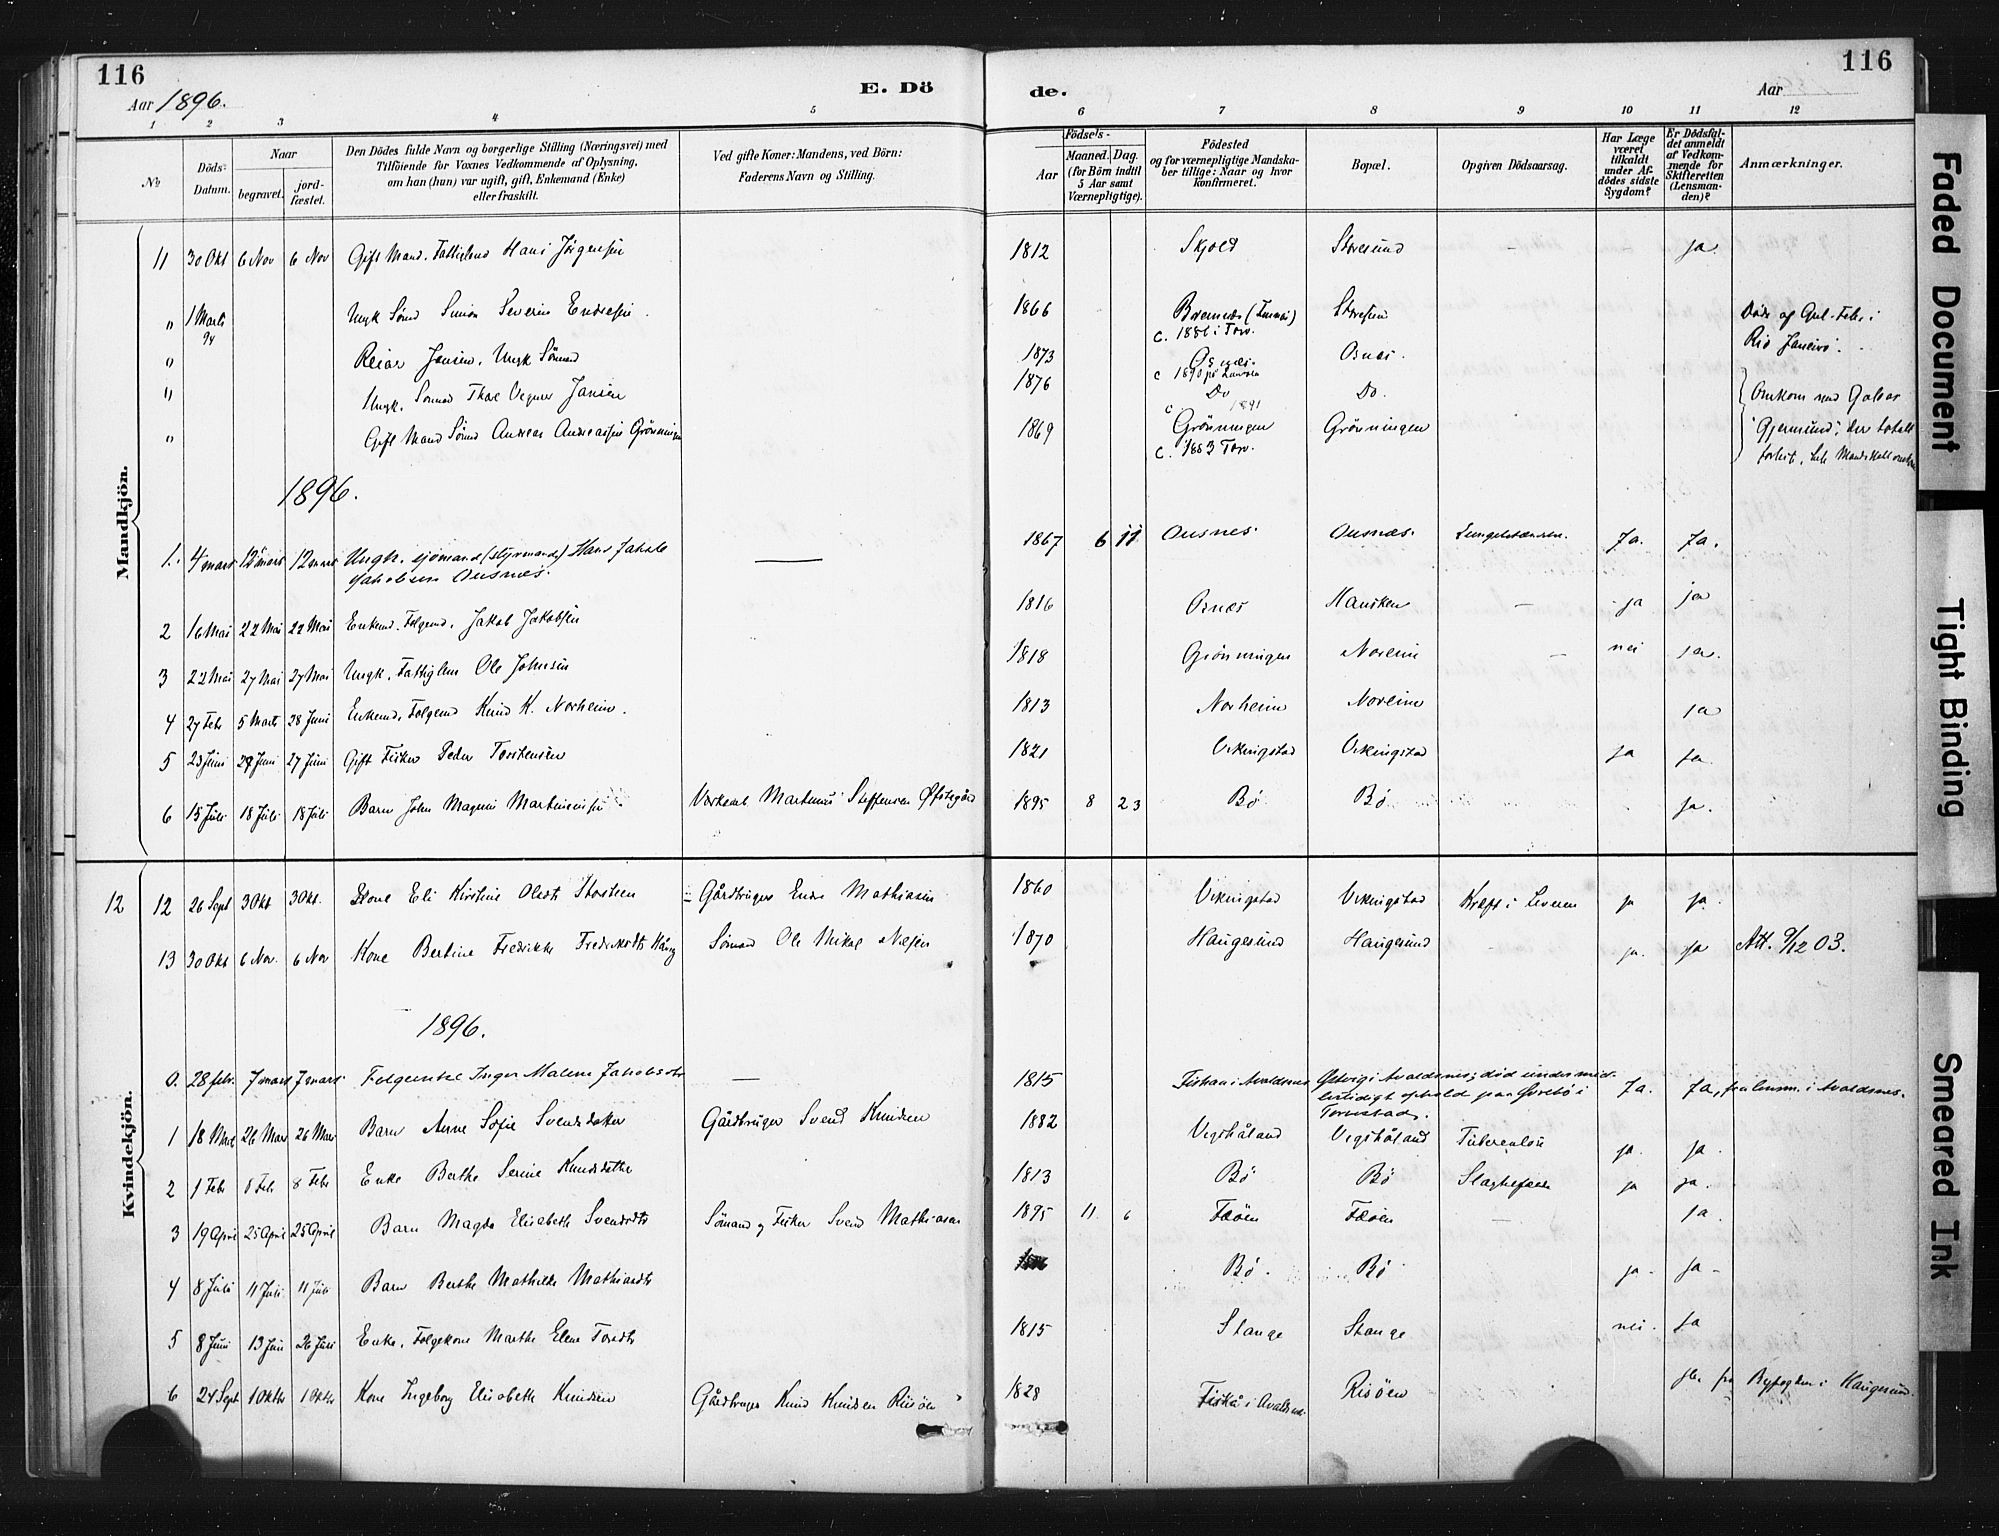 116
Aar 1896.
E. Dö
de.
116
Aar
1 2 3 4 5 6 7 8 9 10 11 12
№
Döds-Datum.
Naar
begravet.
jordfæstet.
Den Dödes fulde Navn og borgerlige Stilling (Næringsvei) med
Tilföiende for Voxnes Vedkommende af Oplysning,
om han (hun) var ugift, gift, Enkemand (Enke)
eller fraskilt.
Ved gifte Koner: Mandens, ved Börn:
Faderens Navn og Stilling.
Födsels-
Aar
Maaned. Dag.
(for Börn indtil
5 Aar samt
Værnepligtige).
Födested
og for værnepligtige Mandskaber tillige: Naar og hvor
konfirmeret.
Bopæl.
Opgiven Dödsaarsag.
Har Læge
været
tilkaldt
under Afdödes sidste
Sygdom?
Er Dödsfaldet anmeldt
af Vedkommende for
Skifteretten
(Lensmanden)?
Anmærkninger.
Mandkjön.
11 30 Okt 6 Nov 6 Nov Gift Mand. Fattiglem Hans Jörgensen 1812 Skjold Storesund - ja.
" 1 Marts 94 Ungk Sömd Simon Severin Endresen. 1866 Storesun Döde af Gul-Feber i
c. 1886 i Torv. Rio Janeiro.
" Reiar Jansen, Ungk Sömand 1873 Osnes. Osnes.
c 1890
" Ungk. Sömand Thore Vegner Jansen 1876 Do Do. Omkom med Galeas
c 1891
" Gift Mand Sömd Andreas Andreassen Grönningen 1869 Grönningen Grönningen "Gjermund", der totalt
c. 1883 Torv. forliste, hele Mandskabet omkom
1896.
1. 4 mars 12 mars 12 mars Ungk. sjömand (styrmand) Hans Jakob — 1867 6 11 Ousnes. Ousnæs. Ja. Ja.
Jakobsen Ousnes.
2 16 Mai 22 Mai 22 Mai Enkemd. Folgemd. Jakob Jakobsen 1816 Osnæs Hausken - ja ja
3 22 Mai 27 Mai 27 Mai Ungk. Fattiglem Ole Johnsen 1818 Grönningen Noreim - nei ja.
4 27 Febr 5 Marts 28 Juni Enkemd. Folgemd Knud K. Norheim. 1813 Norheim Noreim ja
5 23 Juni 27 Juni 27 Juni Gift Fisker Peder Torstensen 1821 Vikingstad Vikingstad ja ja
6 15 Juli 18 Juli 18 Juli Barn John Magnus Martinusen Martinus Steffensen 1895 8 23 Bö Bö ja.
Kvindekjön.
12 12 26 Sept 3 Okt 3 Okt. Kone Eli Kirstine Olsdt Storsteen Gårdbruger Endre Mathiasen 1860 Vikingstad Vikingstad Kræft i Leveren ja ja.
13 30 Okt 6 Nov. 6 Nov Kone Bertine Fredrikke Fredriksdtr Sömand Ole Mikal Nilsen 1870 Haugesund Haugesund ja. ja Att. 9/12 03.
1896.
0. 28 febr. 7 mars 7 mars Folgeenke Inger Malene Jakobsdtr — 1815 Fiskaa i Avaldsnes Gitvig i Avaldsnes; död under midlertidigt ophold paa i Ja. Ja, fra lensm. i Avaldsnes.
1 18 26 Mar 26 Mar Barn Anne Sofie Svendsdatter Gårdbruger Svend Knudsen 1882 Vigshåland Vigshåland Tuberculose ja. ja.
2 1 Febr 8 Febr 8 Febr Enke Berthe Serine Knudsdatter 1813 Bö Bö ja ja.
3 19 April 25 April 25 April Barn Magda Elisabeth Svendsdtr Sömand og Fisker Svend Mathiasen 1895 11 6 Föen Föen - ja.
4 8 Juli 11 Juli 11 Juli Barn Berthe Mathilde Mathiasdtr Bö. Bö ja - ja -
5 8 Juni 13 Juni 26 Juli Enke, Folgekone Marthe Elene 1815 Stange Stange nei. ja
6 24 Sept 1 Oktbr 1 Oktbr Kone Ingeborg Elisabeth Knudsen Gårdbruger Knud Knudsen Risöen 1828 Fiskå i Avaldsnes. Risöen fra Byfogden i Haugesund.
Faded Document
Tight Binding
Smeared Ink